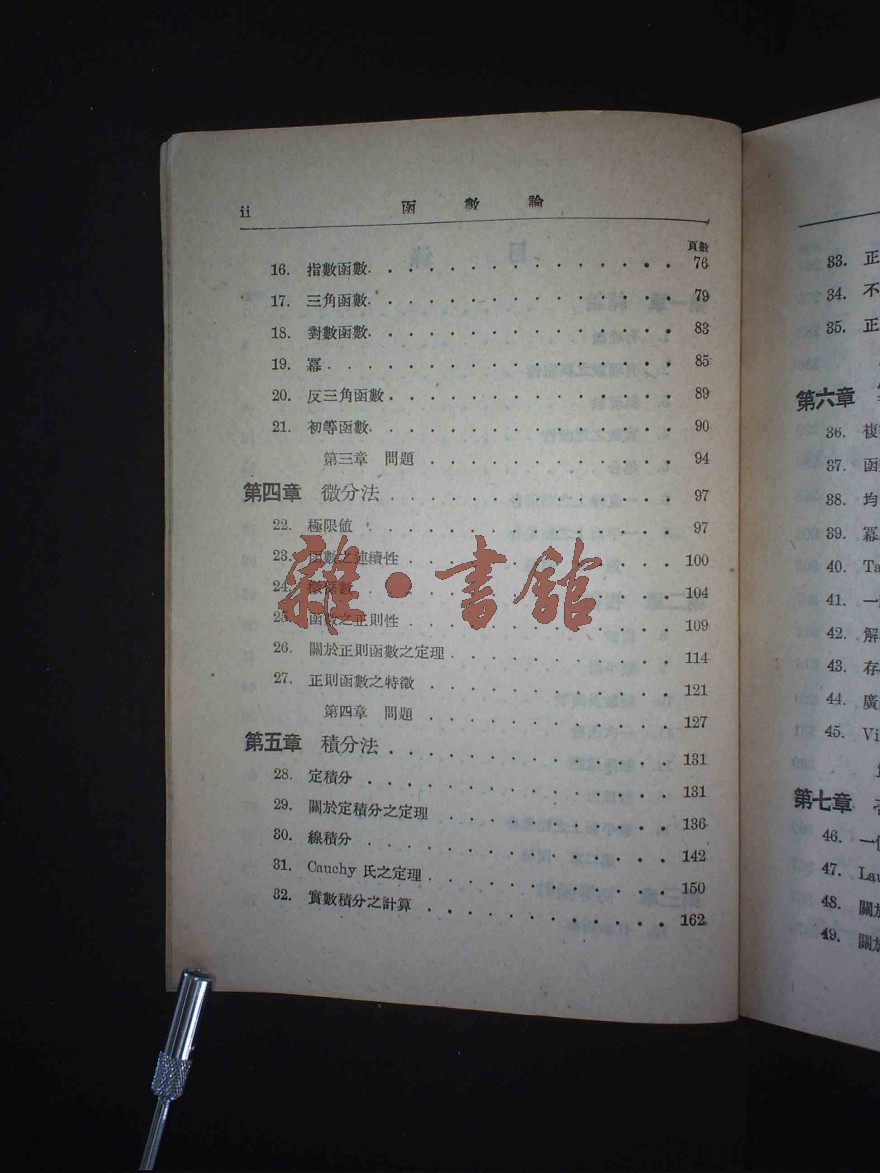 ii 函數論
頁數
16. 指數函數 76
17. 三角函數 79
18. 對數函數 83
19. 冪 85
20. 反三角函數 89
21. 初等函數 90
第三章 問題 94
第四章 微分法 97
22. 極限値 97
23. 函數之連續性 100
24. 微係數 104
25. 函數之正則性 109
26. 關於正則函數之定理 114
27. 正則函數之特徵 121
第四章 問題 127
第五章 積分法 131
28. 定積分 131
29. 關於定積分之定理 136
30. 線積分 142
31. Cauchy 氏之定理 150
32. 實數積分之計算 162
雜·書館
33. 正
34. 不
35. 正
第六章
36. 複
37. 函
38. 均
39. 冪
40. Ta
41. 一
42. 解
43. 存
44. 廣
45. Vi
第七章
46. 一
47. Lau
48. 關
49. 關